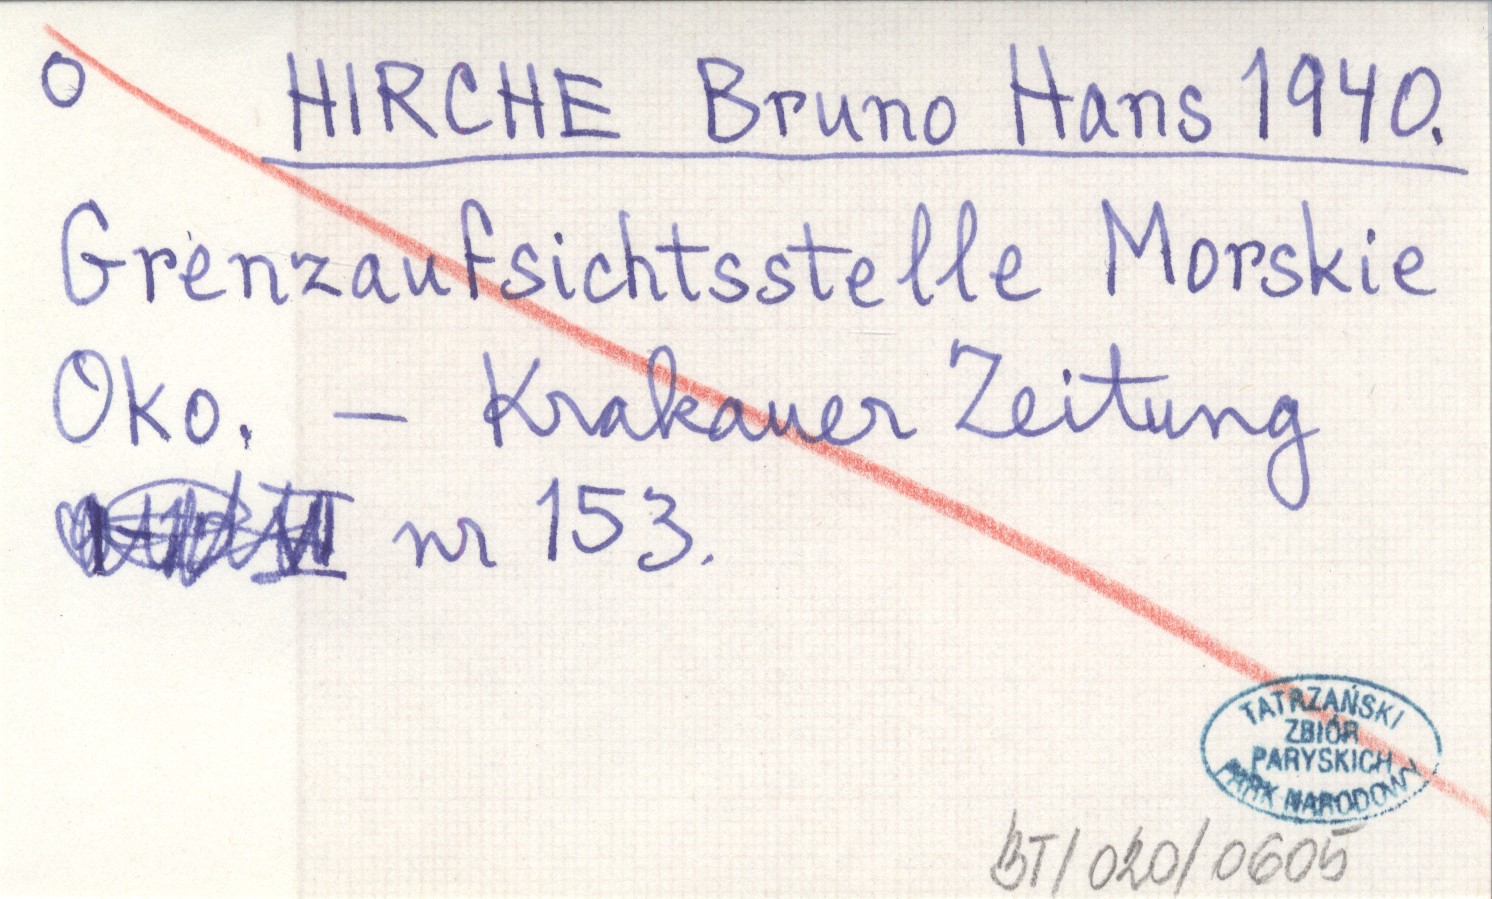 O HIRCHE Bruno Hans 1940.
Grenzaufsichtsstelle Morskie
Oko. — Krakauer Zeitung
nr 153.
TATRZAŃSKI
ZBIÓR
PARYSKICH
PARK NARODOWY
BT/020/0605